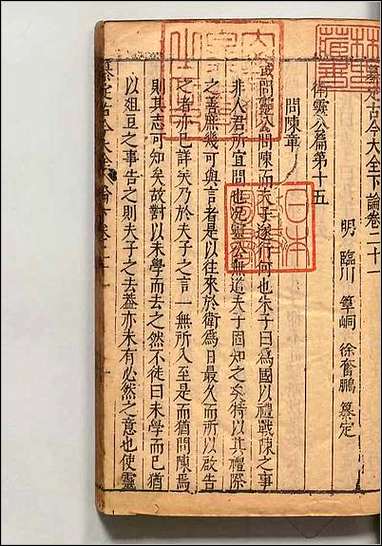 纂定古今大全下論卷二十一
明 臨川 筆峒 徐奮鵬 纂定
衛靈公篇第十五
問陳章
或問靈公問陳而夫子遂行何也朱子曰為國以禮戰陳之事
非人君所宜問也况靈公無道夫子固知之矣特以其禮際
之善庶幾可與言者是以往來於衛為日最久而所以啟告
之者亦已詳矣乃於夫子之言一無所入至是而猶問陳焉
則其志可知矣故對以未學而去之然不徒曰未學而已猶
以俎豆之事告之則夫子之去蓋亦未有必然之意也使靈
纂定古今大全
日本